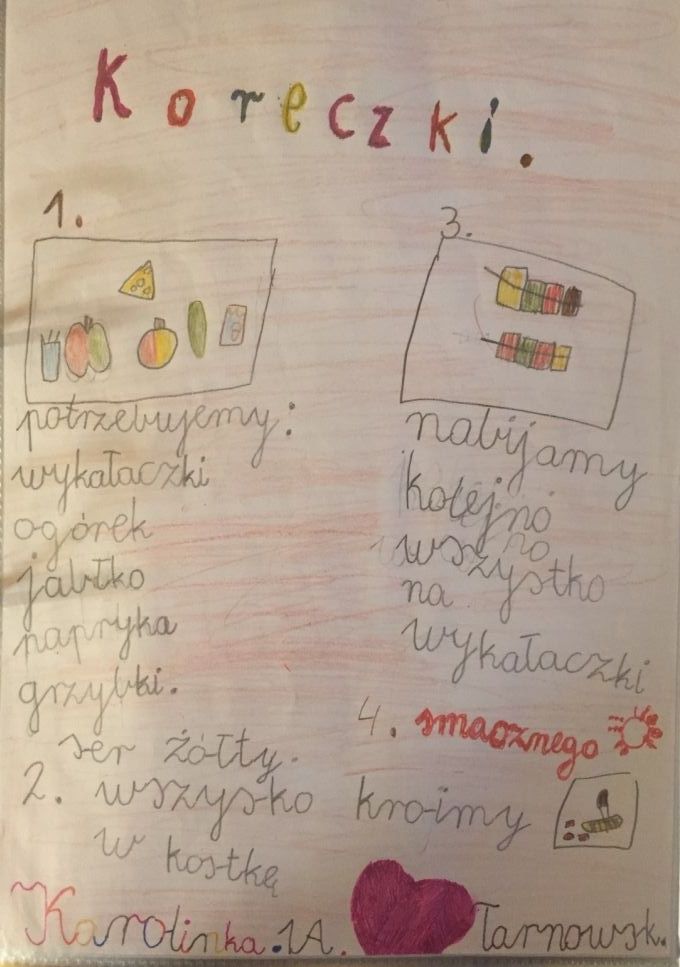 Koreczki.
1.
potrzebujemy:
wykałaczki
ogórek
jabłko
papryka
grzybki.
ser żółty.
2. wszysko kroimy
w kostkę
3.
nabijamy
kolejno
no
wszystko
na
wykałaczki
4. smacznego
Karolinka.1A. Tarnowsk.